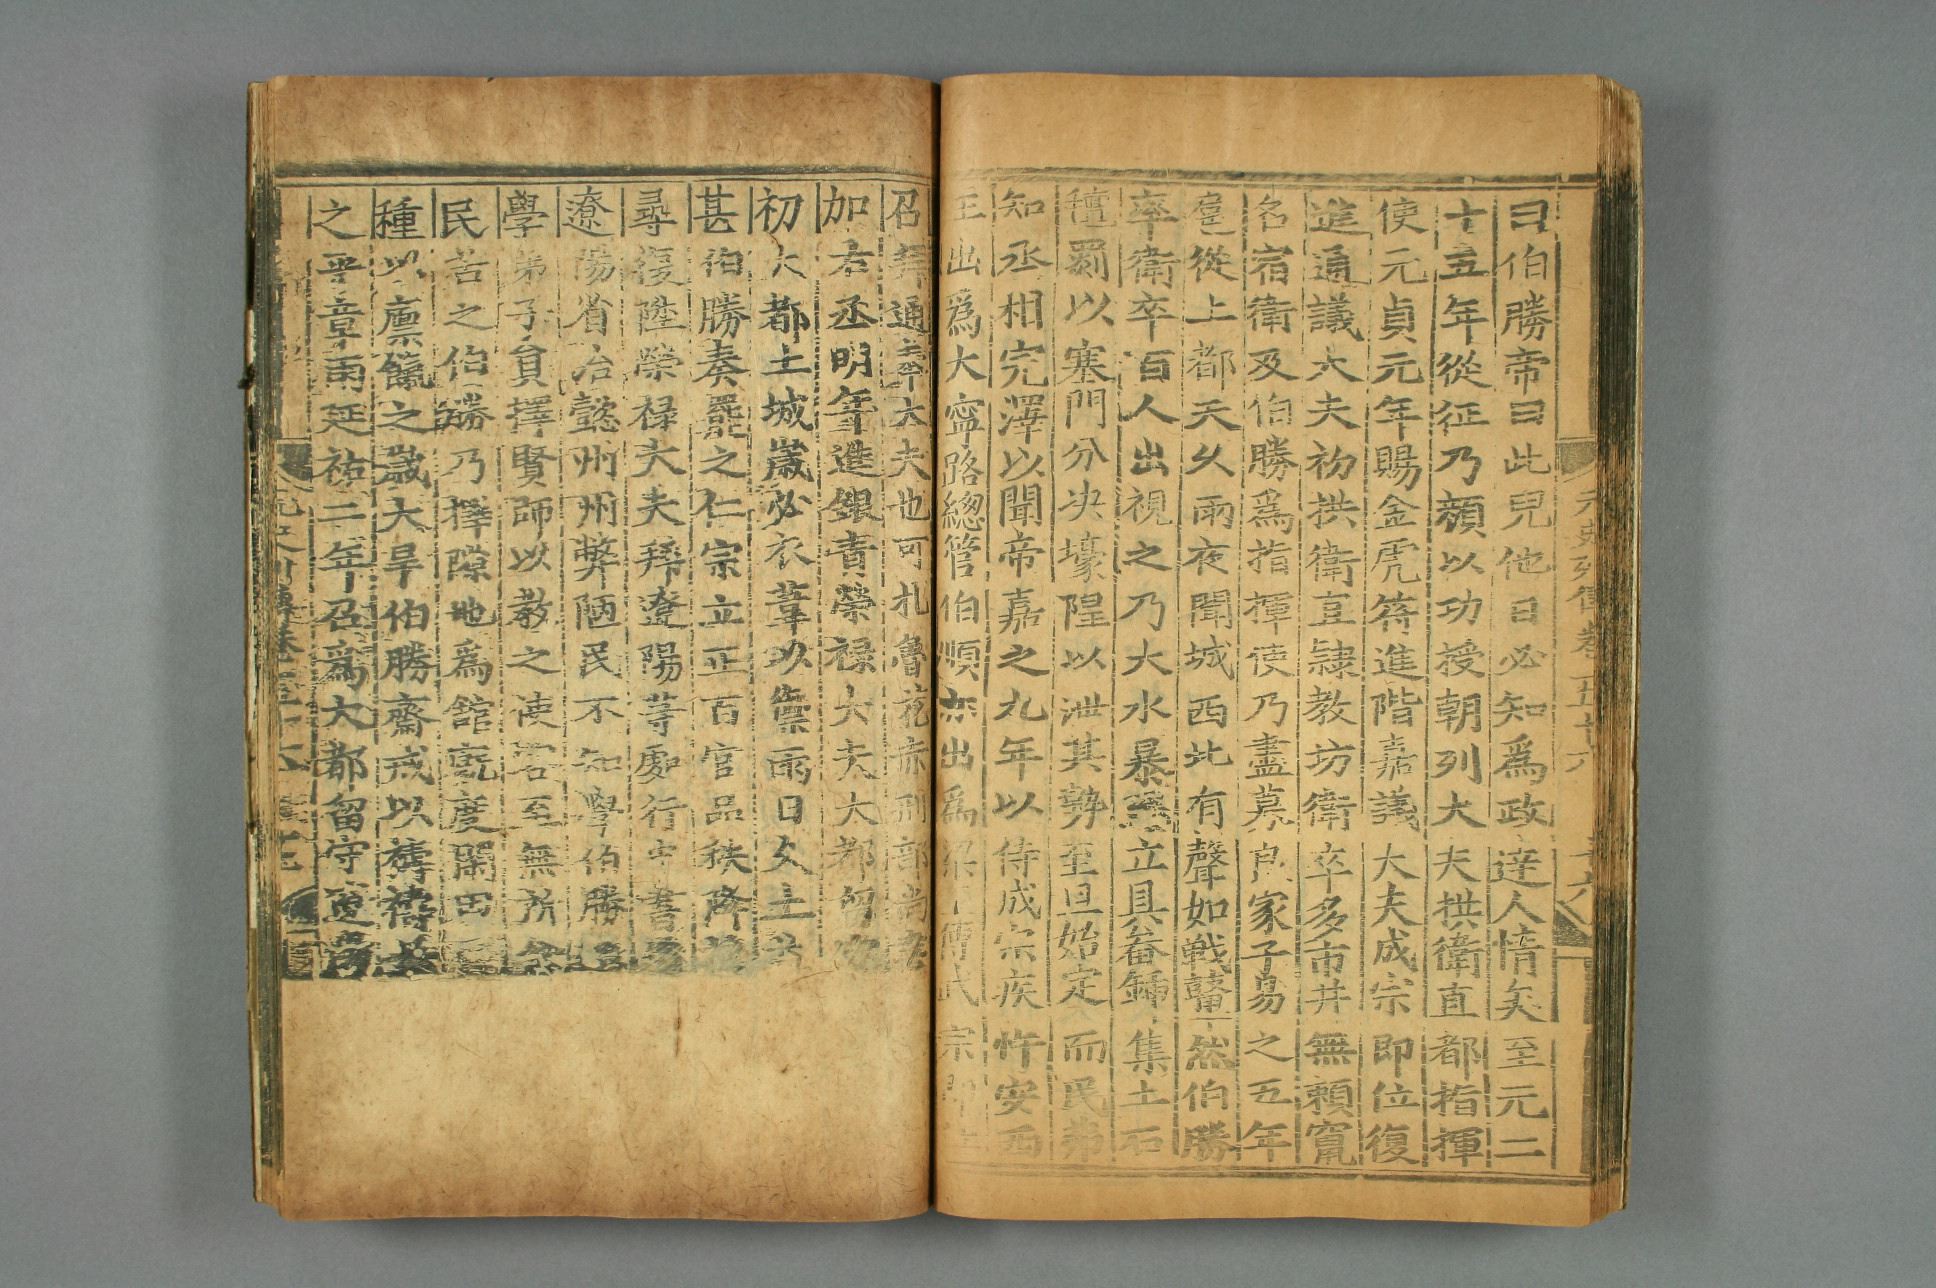 曰伯勝帝曰此兒他日必知爲政達人情矣至元二
十五年從征乃顔以功授朝列大夫拱衛直都指揮
使元貞元年賜金虎符進階嘉議大夫成宗即位復
進通議大夫初拱衛直隷教坊衛卒多市井無賴竄
名宿衛及伯勝爲指揮使乃盡募良家子易之五年
扈從上都天久雨夜聞城西北有聲如戰鼙然伯勝
卒衛卒百人出視之乃大水暴至立具畚鍤集土石
氊罽以塞門分决壕隍以泄其勢至旦始定而民弗
知丞相完澤以聞帝嘉之九年以侍成宗疾忤安西
王出爲大寧路總管伯順亦出爲梁王傅武宗即位
召拜通奉大夫也可札魯花赤刑部尚
加右丞明年進銀青榮禄大夫大都留
初大都土城歲必衣葦以禦雨日久土
甚伯勝奏罷之仁宗立正百官品秩降
尋復陞榮禄大夫拜遼陽等處行中書
遼陽省治懿州州弊陋民不知學伯勝
學弟子員擇賢師以教之使客至無所
民苦之伯勝乃擇隙地爲館廐度閑田
種以廩餼之歲大旱伯勝齋戒以禱禱
之平章雨延祐二年召爲大都留守
元史列傳卷五十六
元史列傳卷五十六